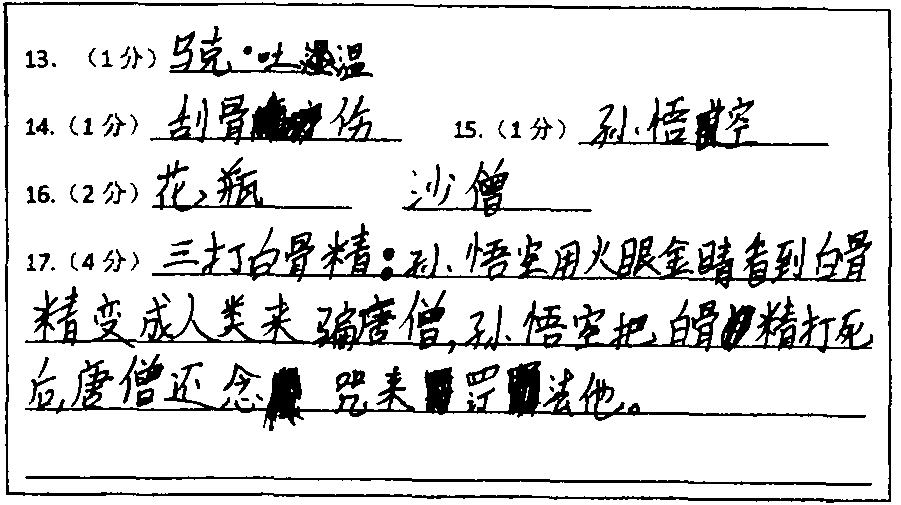 13. （1分）乌克·吐温
14.（1分）刮骨伤 15.（1分）孙悟空
16.（2分）花瓶 沙僧
17.（4分）三打白骨精：孙悟空用火眼金睛看到白骨
精变成人类来骗唐僧,孙悟空把白骨精打死
后,唐僧还念咒来罚法他。